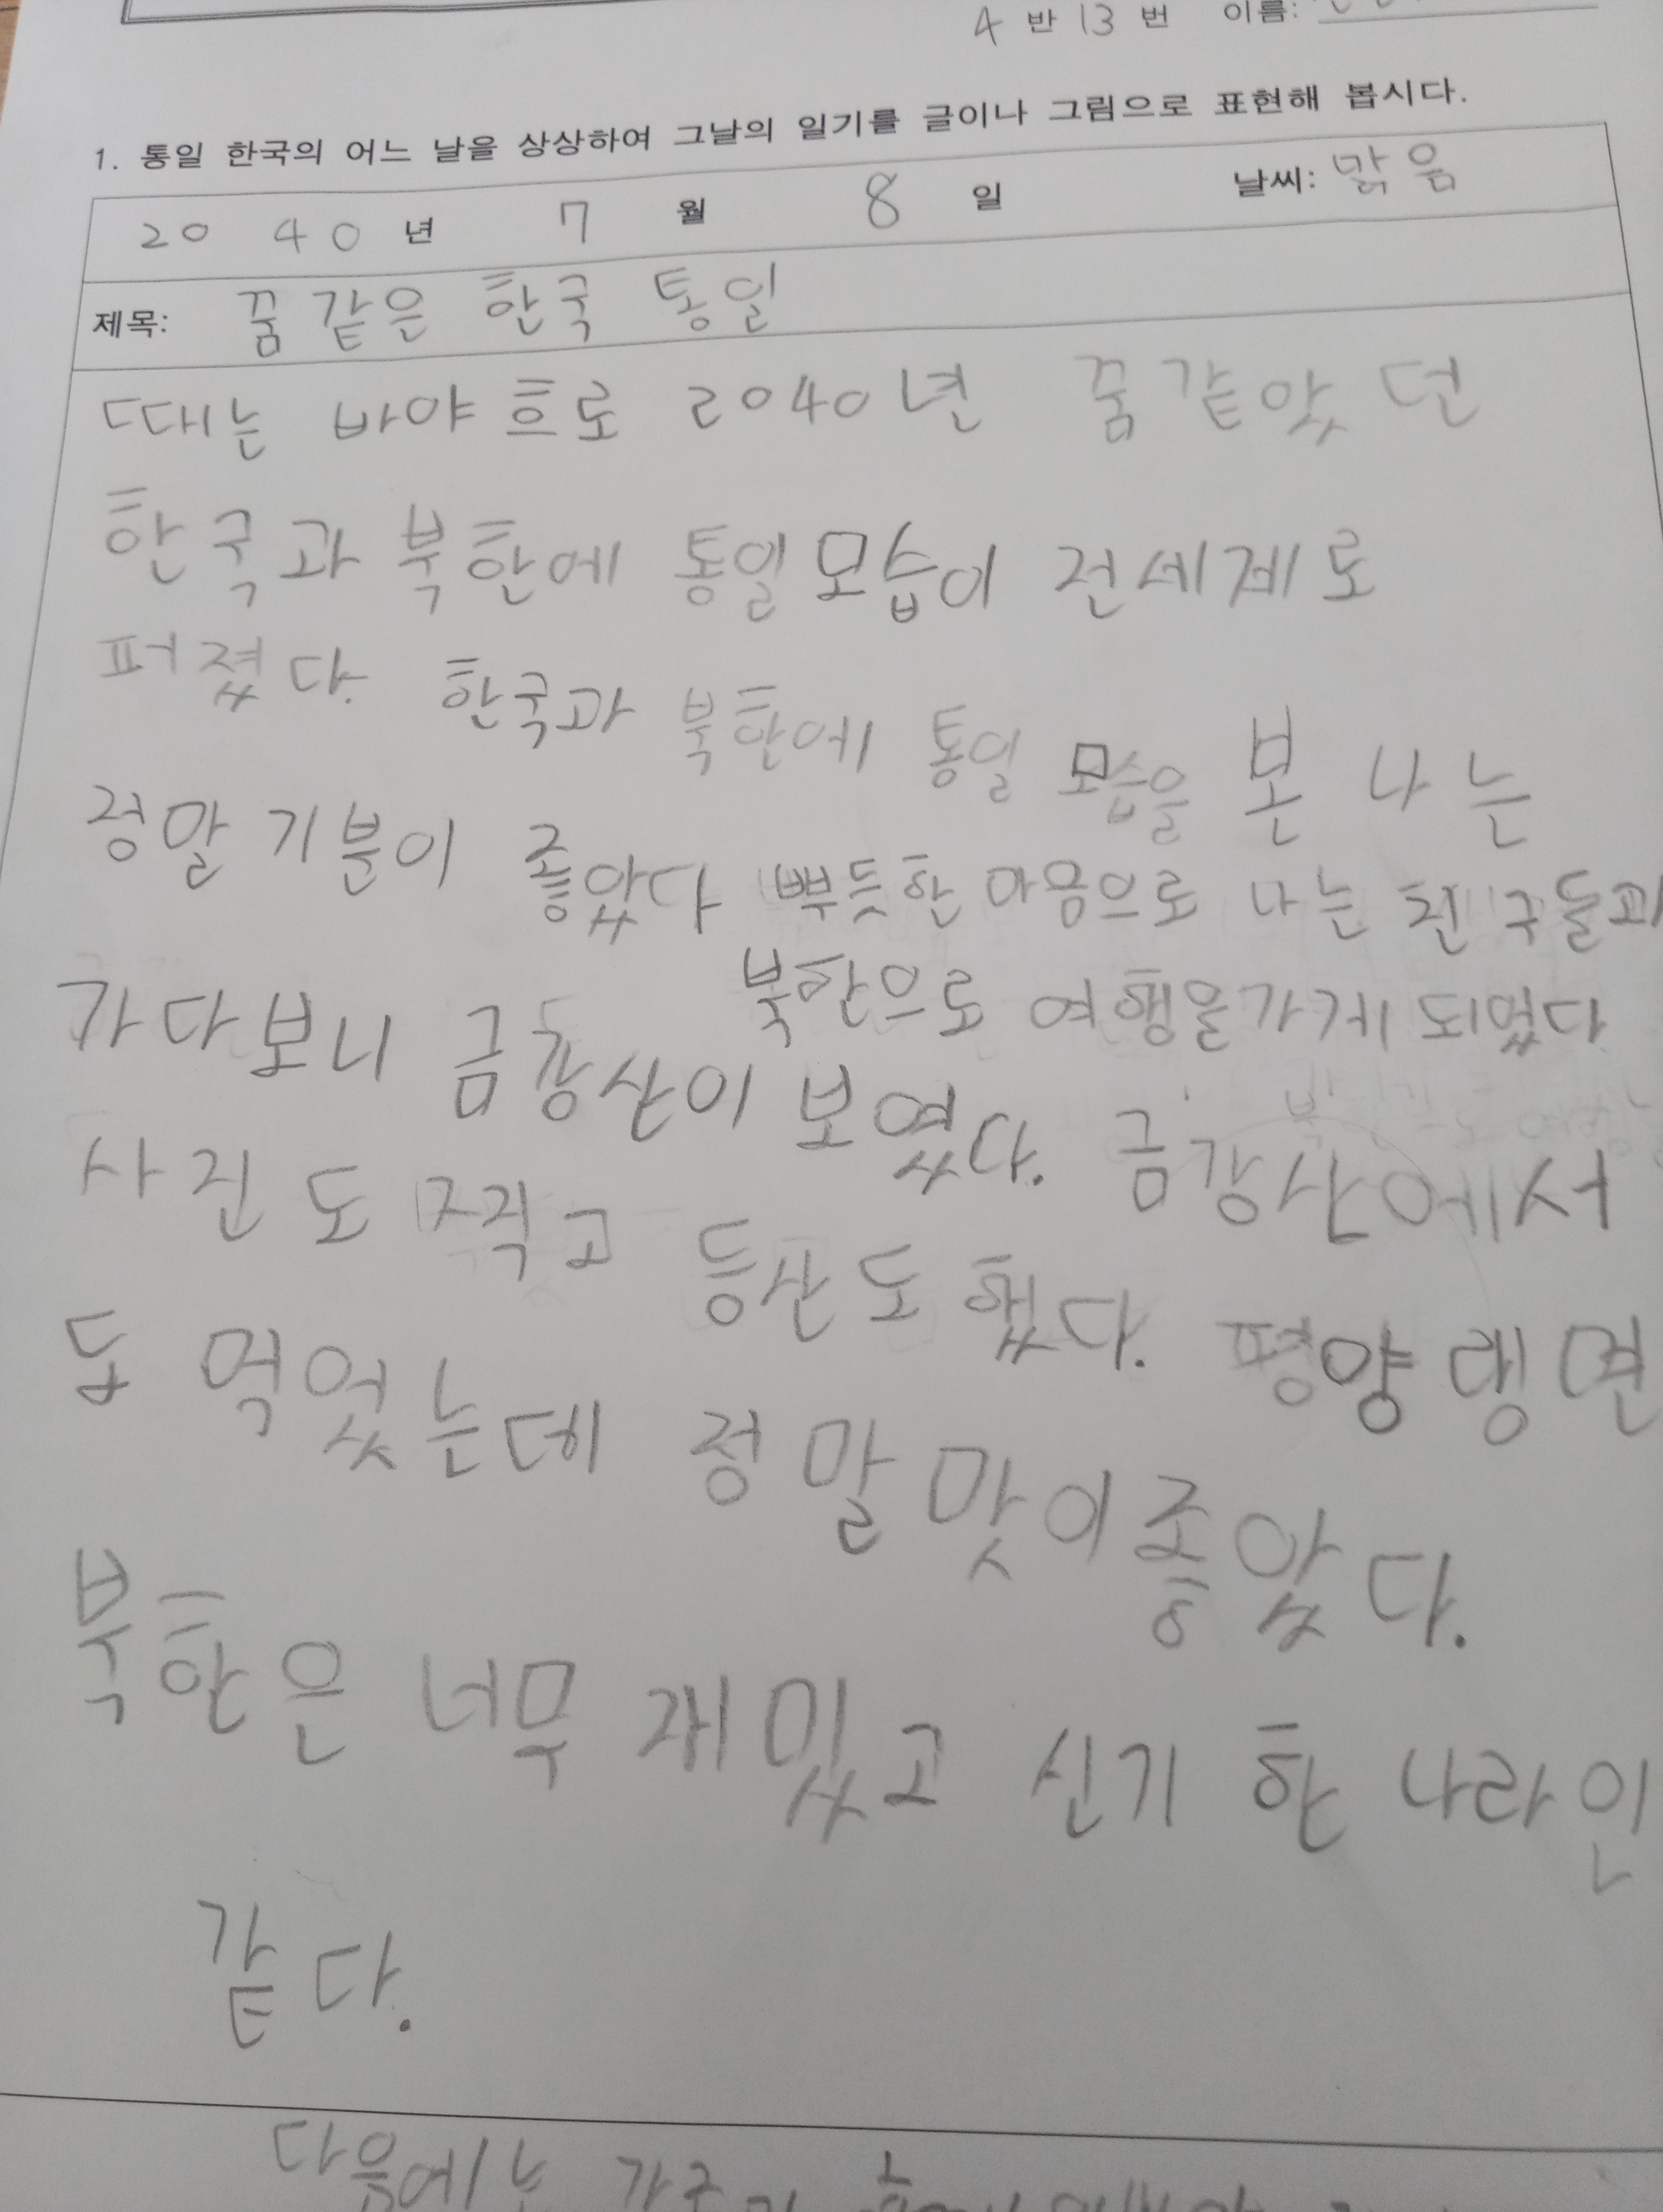 4 반 13 번 이름:
1. 통일 한국의 어느 날을 상상하여 그날의 일기를 글이나 그림으로 표현해 봅시다.
20 40 년 7 월 8 일 날씨: 맑음
제목: 꿈같은 한국 통일
때는 바야흐로 2040년 꿈같았던
한국과 북한에 통일모습이 전세계로
퍼졌다. 한국과 북한에 통일 모습을 본 나는
정말 기분이 좋았다 뿌듯한 마음으로 나는 친구들과
북한으로 여행을가게 되었다
가다보니 금강산이 보였다. 금강산에서
사진도 찍고 등산도 했다. 평양랭면
도 먹었는데 정말 맛이좋았다.
북한은 너무 재밌고 신기한 나라인
같다.
다음에는